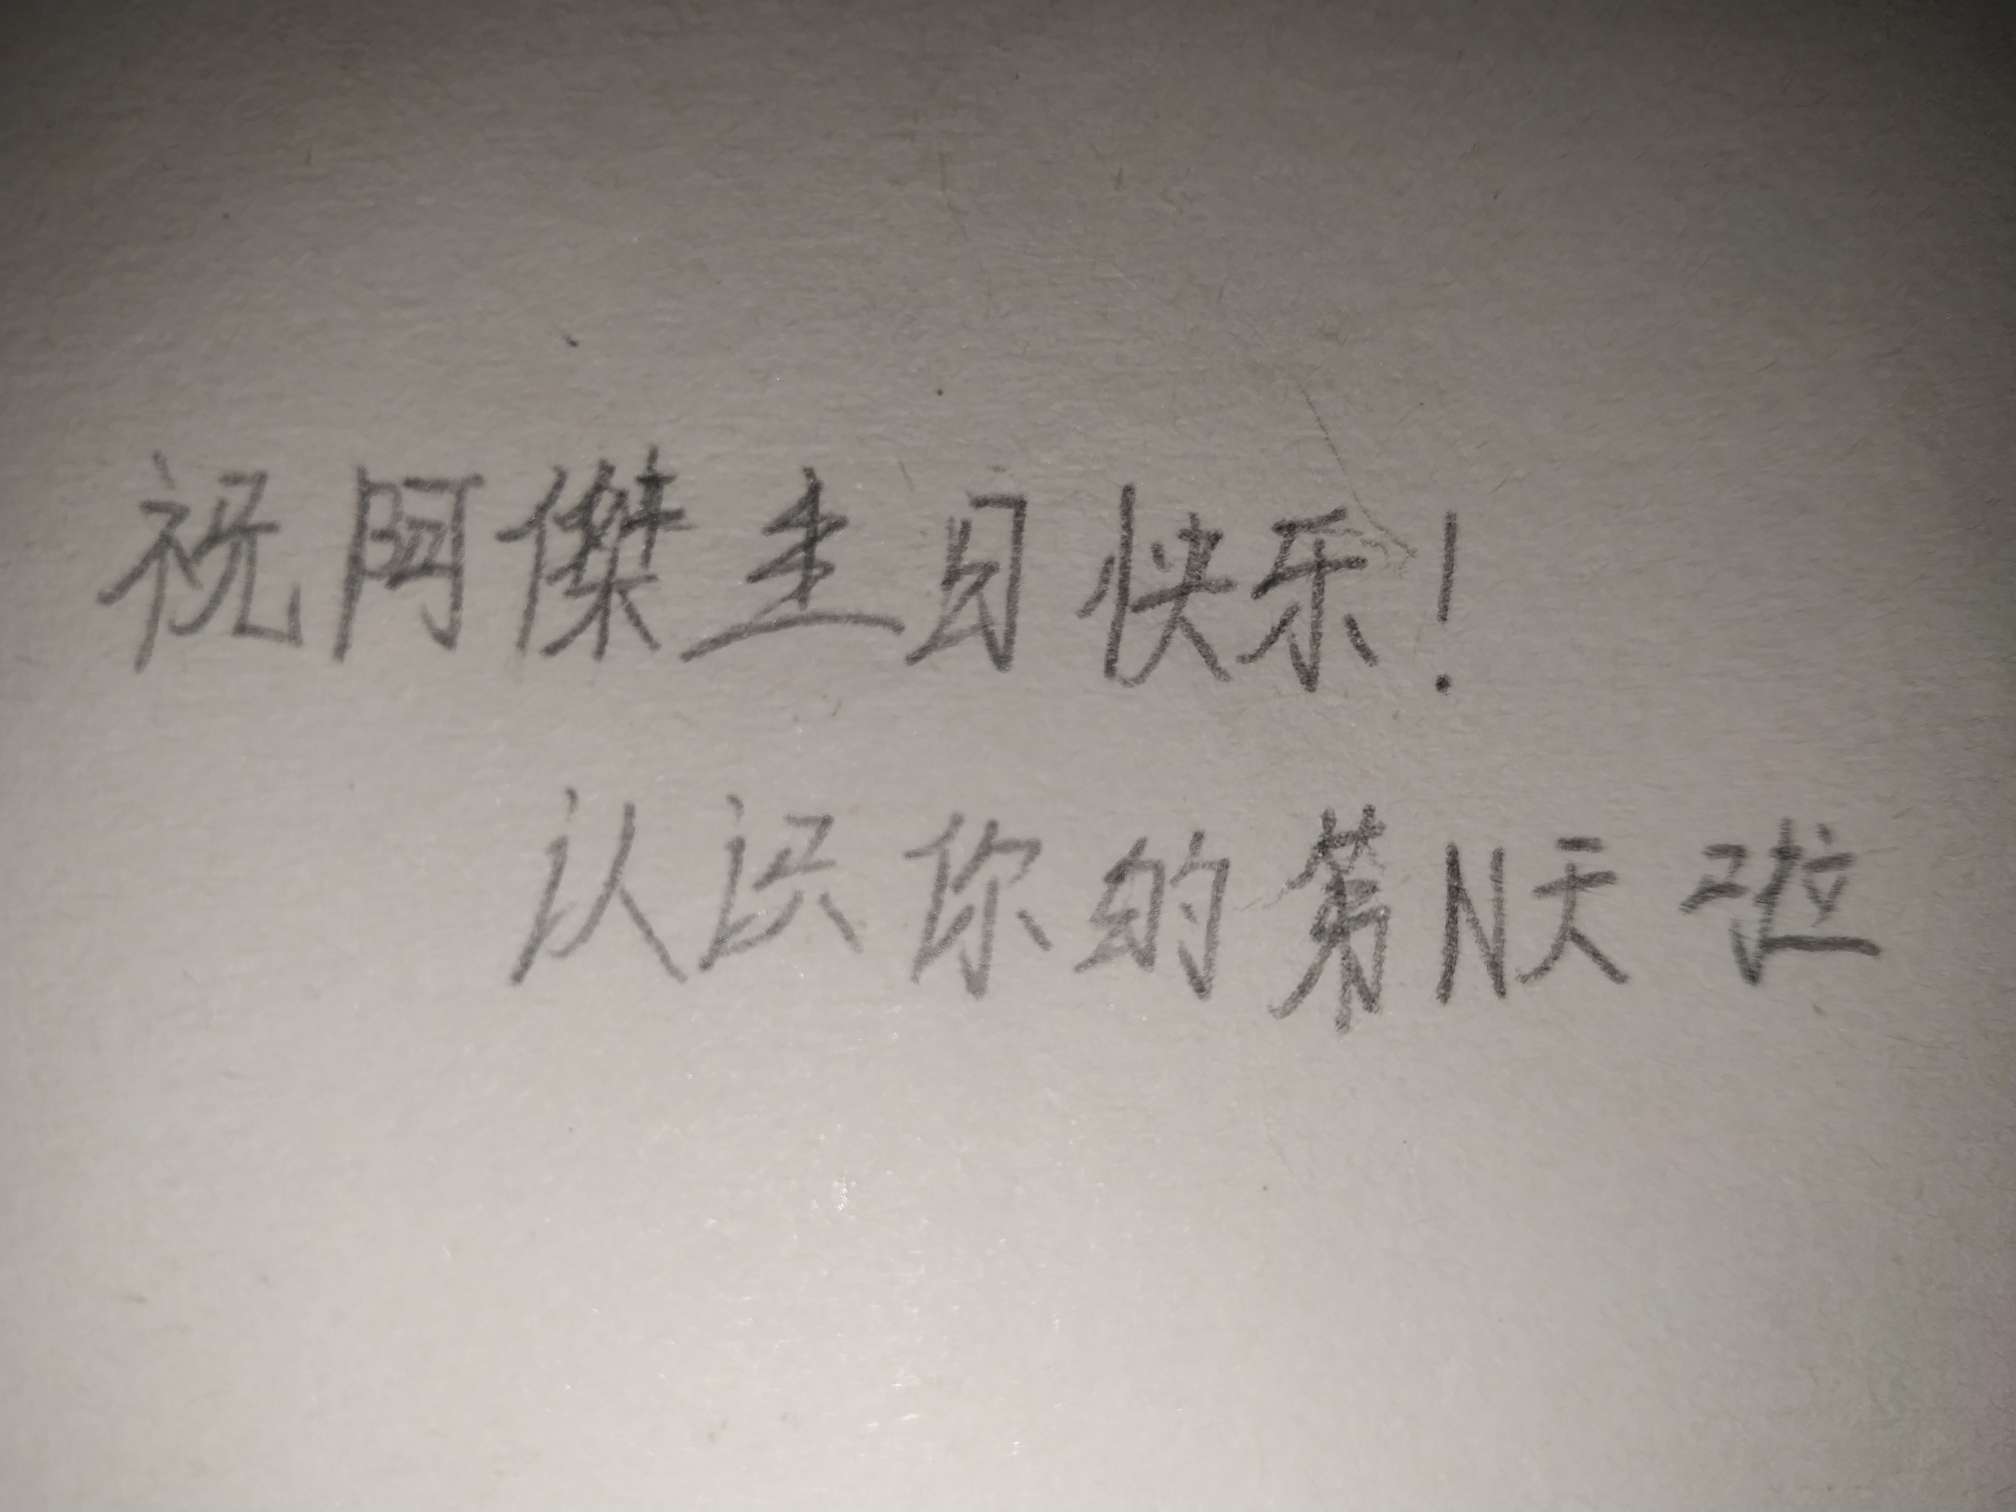 祝阿傑生日快乐!
认识你的第N天啦